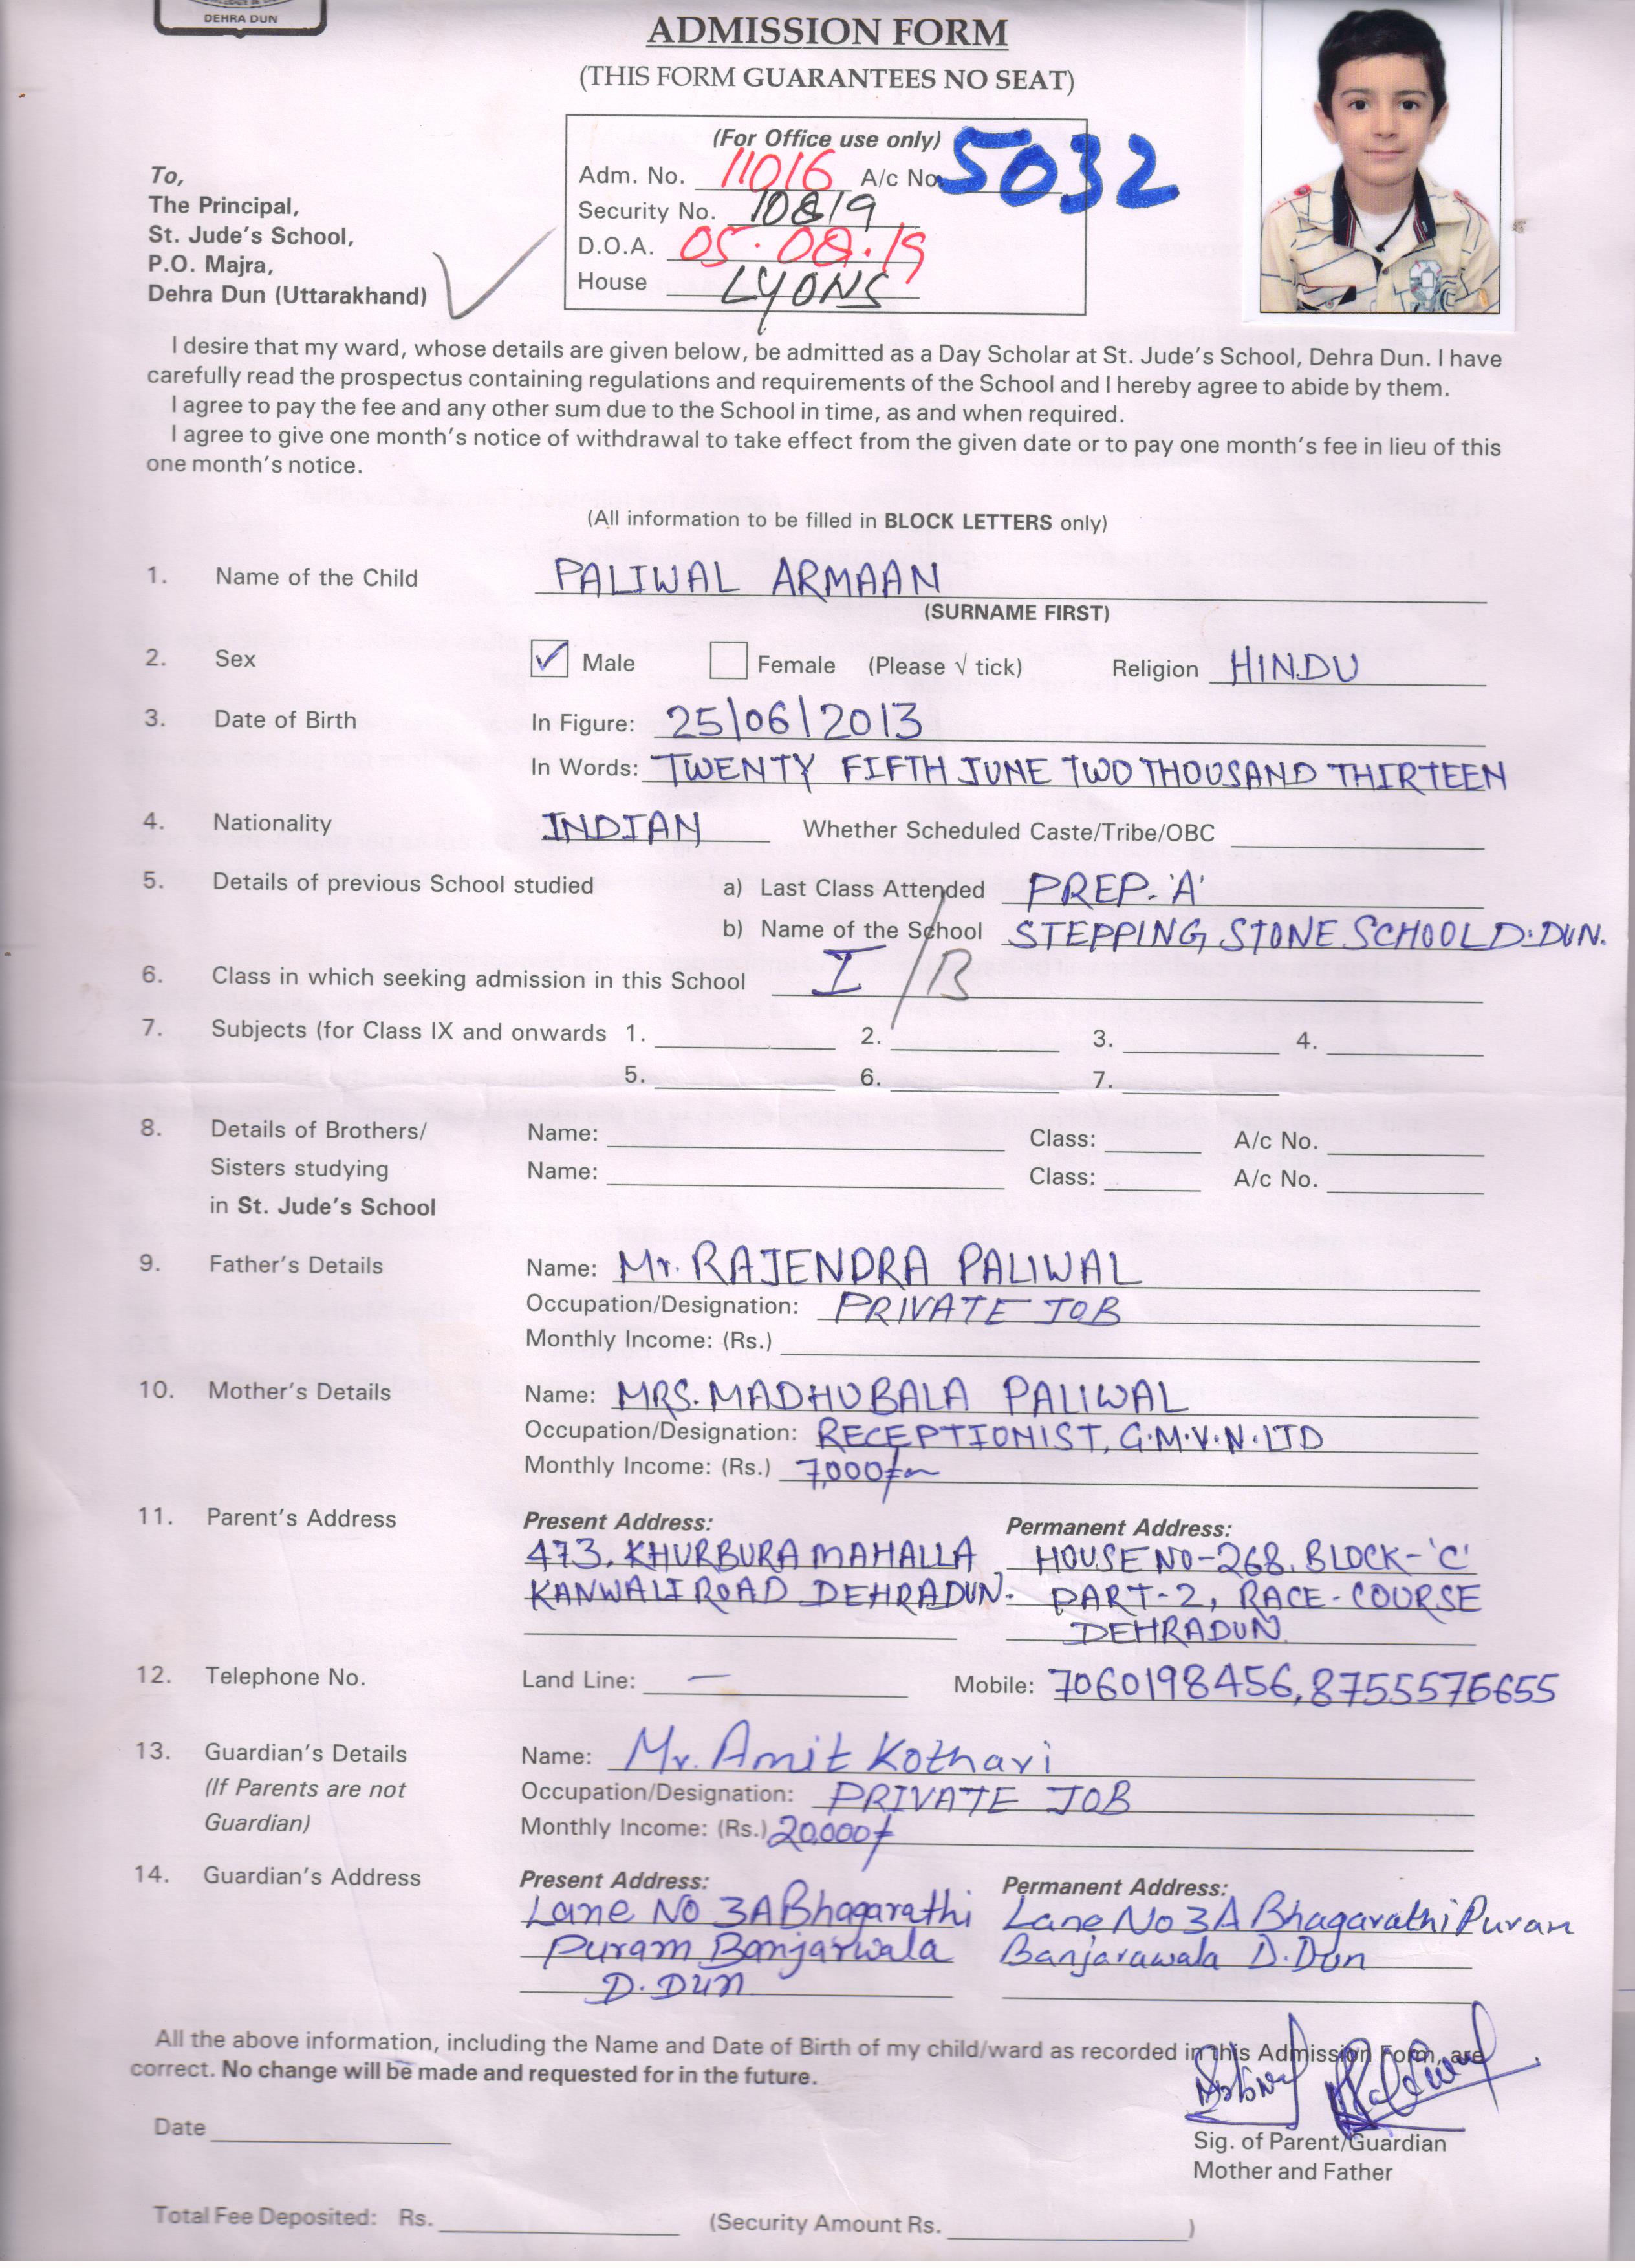 DEHRA DUN
ADMISSION FORM
(THIS FORM GUARANTEES NO SEAT)
(For Office use only)
Adm. No. 11016 A/c No. 5032
Security No. 10819
D.O.A. 05.08.19
House LYONS
To,
The Principal,
St. Jude's School,
P.O. Majra,
Dehra Dun (Uttarakhand)
I desire that my ward, whose details are given below, be admitted as a Day Scholar at St. Jude's School, Dehra Dun. I have
carefully read the prospectus containing regulations and requirements of the School and I hereby agree to abide by them.
I agree to pay the fee and any other sum due to the School in time, as and when required.
I agree to give one month's notice of withdrawal to take effect from the given date or to pay one month's fee in lieu of this
one month's notice.
(All information to be filled in BLOCK LETTERS only)
1. Name of the Child PALIWAL ARMAAN
(SURNAME FIRST)
2. Sex ✓ Male Female (Please √ tick) Religion HINDU
3. Date of Birth In Figure: 25/06/2013
In Words: TWENTY FIFTH JUNE TWO THOUSAND THIRTEEN
4. Nationality INDIAN Whether Scheduled Caste/Tribe/OBC
5. Details of previous School studied a) Last Class Attended PREP-'A'
b) Name of the School STEPPING STONE SCHOOL D.DUN.
6. Class in which seeking admission in this School I/B
7. Subjects (for Class IX and onwards 1. 2. 3. 4.
5. 6. 7.
8. Details of Brothers/ Name: Class: A/c No.
Sisters studying Name: Class: A/c No.
in St. Jude's School
9. Father's Details Name: Mr. RAJENDRA PALIWAL
Occupation/Designation: PRIVATE JOB
Monthly Income: (Rs.)
10. Mother's Details Name: MRS. MADHUBALA PALIWAL
Occupation/Designation: RECEPTIONIST, G.M.V.N. LTD
Monthly Income: (Rs.) 7,000/-
11. Parent's Address Present Address: Permanent Address:
473, KHURBURA MAHALLA, HOUSE NO-268, BLOCK-'C'
KANWALI ROAD DEHRADUN. PART-2, RACE-COURSE
DEHRADUN.
12. Telephone No. Land Line: — Mobile: 7060198456, 8755576655
13. Guardian's Details Name: Mr. Amit Kothari
(If Parents are not Occupation/Designation: PRIVATE JOB
Guardian) Monthly Income: (Rs.) 20,000/
14. Guardian's Address Present Address: Permanent Address:
Lane No 3A Bhagarathi Lane No 3A Bhagarathi Puram
Puram Banjarwala Banjarawala D.Dun
D.DUN
All the above information, including the Name and Date of Birth of my child/ward as recorded in this Admission Form, are
correct. No change will be made and requested for in the future.
Date
Sig. of Parent/Guardian
Mother and Father
Total Fee Deposited: Rs. (Security Amount Rs. )